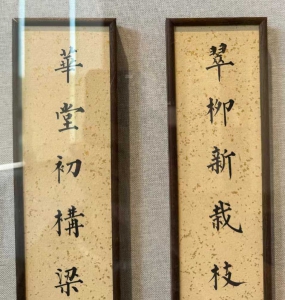 翠柳新栽枝
華堂初構梁